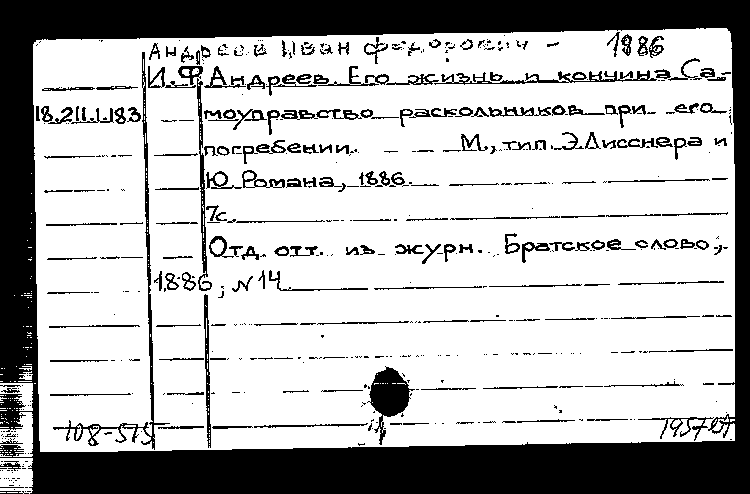 Андреев Иван Федорович – 1886
И.Ф. Андреев. Его жизнь и кончина Са-
18.211.1.183 моуправство раскольников при его
погребении. М., тип. Э.Лисснера и
Ю. Романа, 1886.
7с.
Отд. отт. из журн. Братское слово,
1886, N 14
108-515